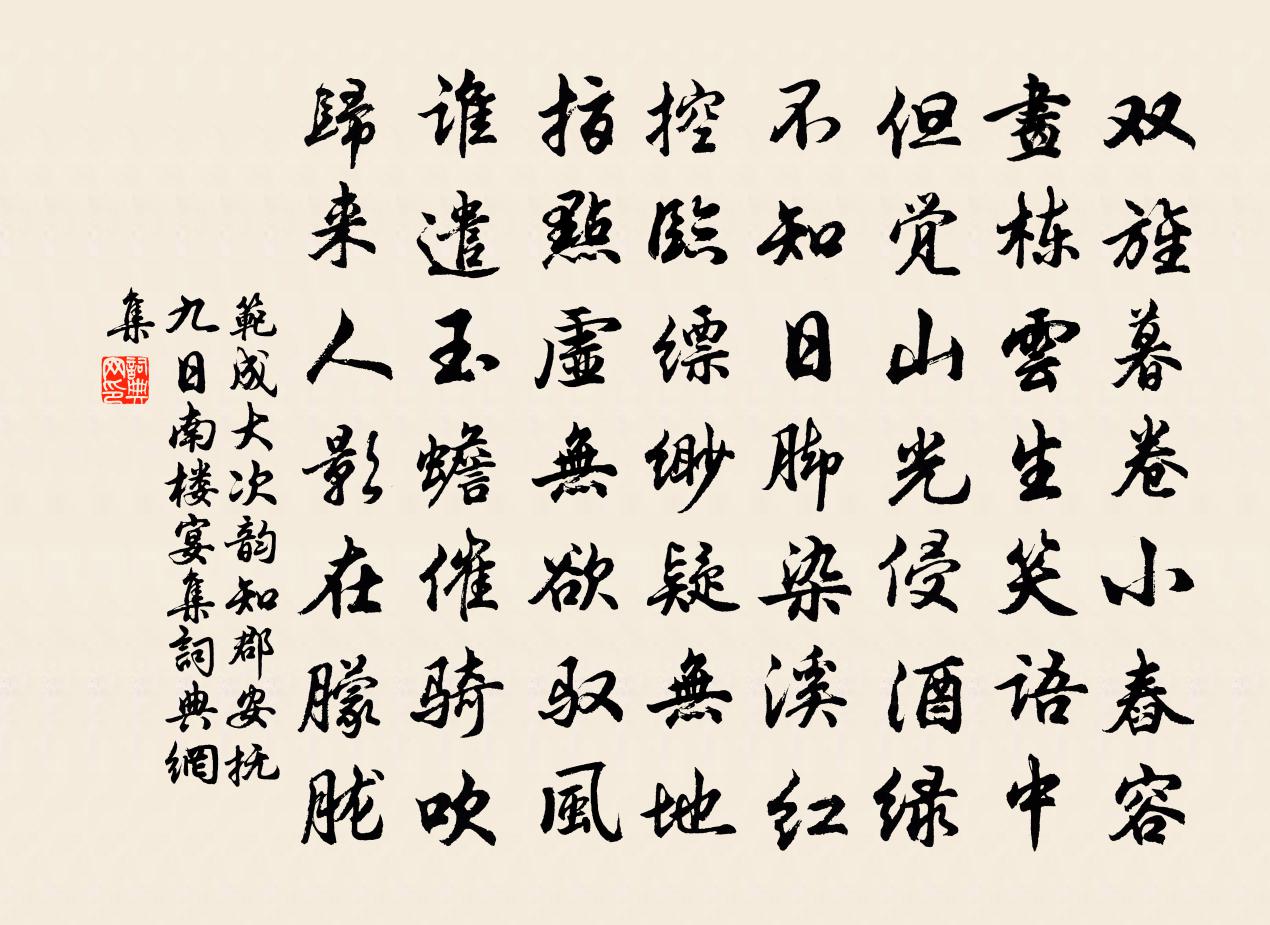 双旌暮卷小春容
畫栋雲生笑语中
但觉山光侵酒绿
不知日脚染溪红
控臨缥缈疑無地
指點虚無欲驭風
谁遣玉蟾催骑吹
歸来人影在朦胧
範成大次韵知郡安抚
九日南楼宴集詞典網
集
詞典
网印